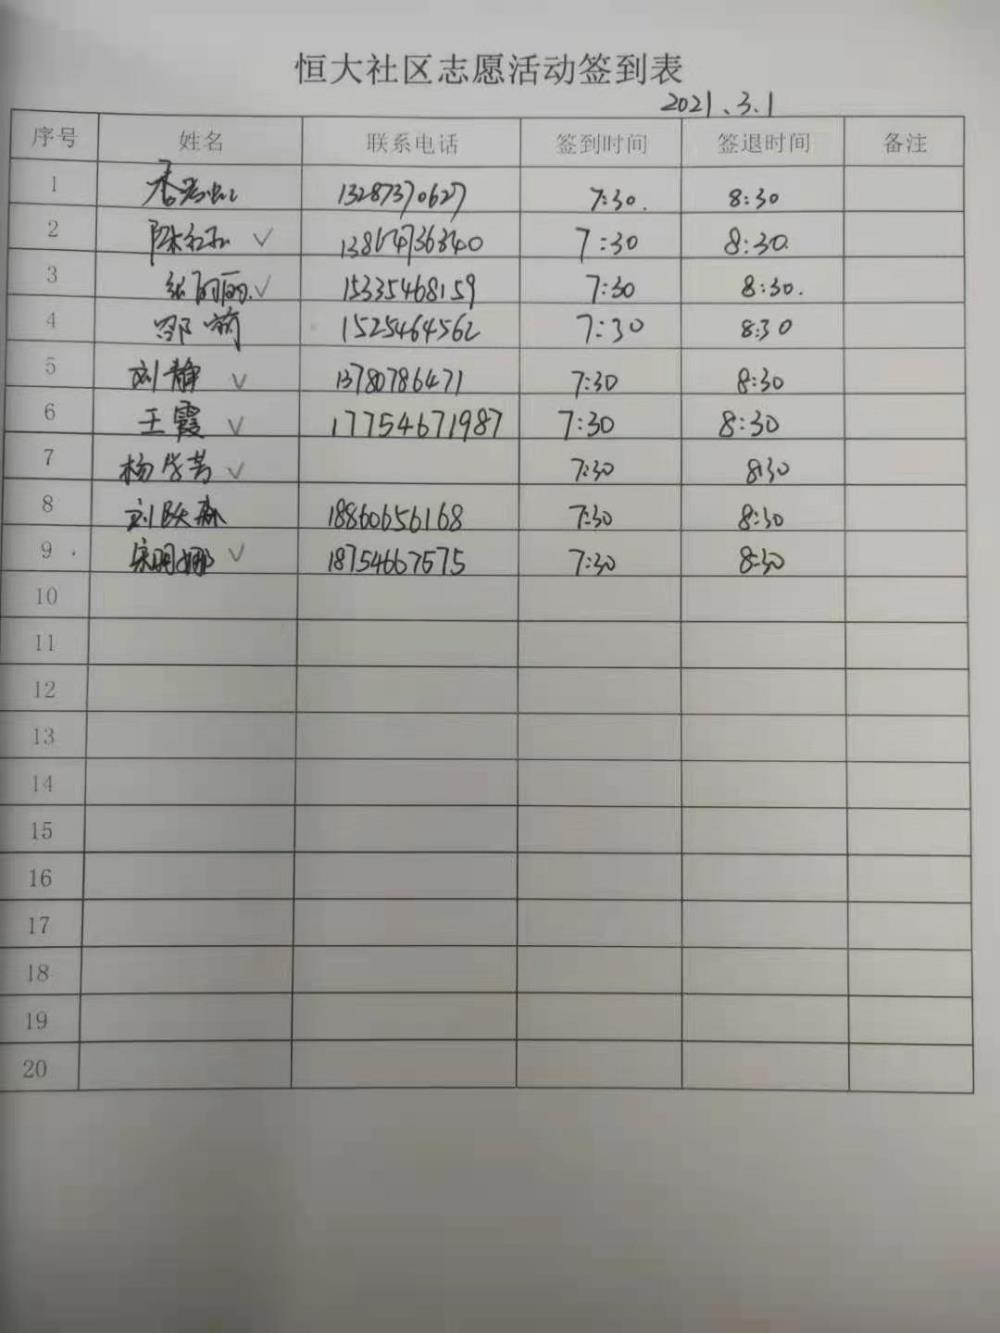 恒大社区志愿活动签到表
2021.3.1
序号 姓名 联系电话 签到时间 签退时间 备注
1 13287370627 7:30. 8:30
2 陈红 ✓ 13864736340 7:30 8:30.
3 张丽丽 ✓ 15335468159 7:30 8:30.
4 邵 1525464562 7:30 8:30
5 刘静 ✓ 13780786471 7:30 8:30
6 王霞 ✓ 17754671987 7:30 8:30
7 杨 芳 ✓ 7:30 8:30
8 刘跃森 18860656168 7:30 8:30
9 宋明娜 ✓ 18754667575 7:30 8:30
10
11
12
13
14
15
16
17
18
19
20